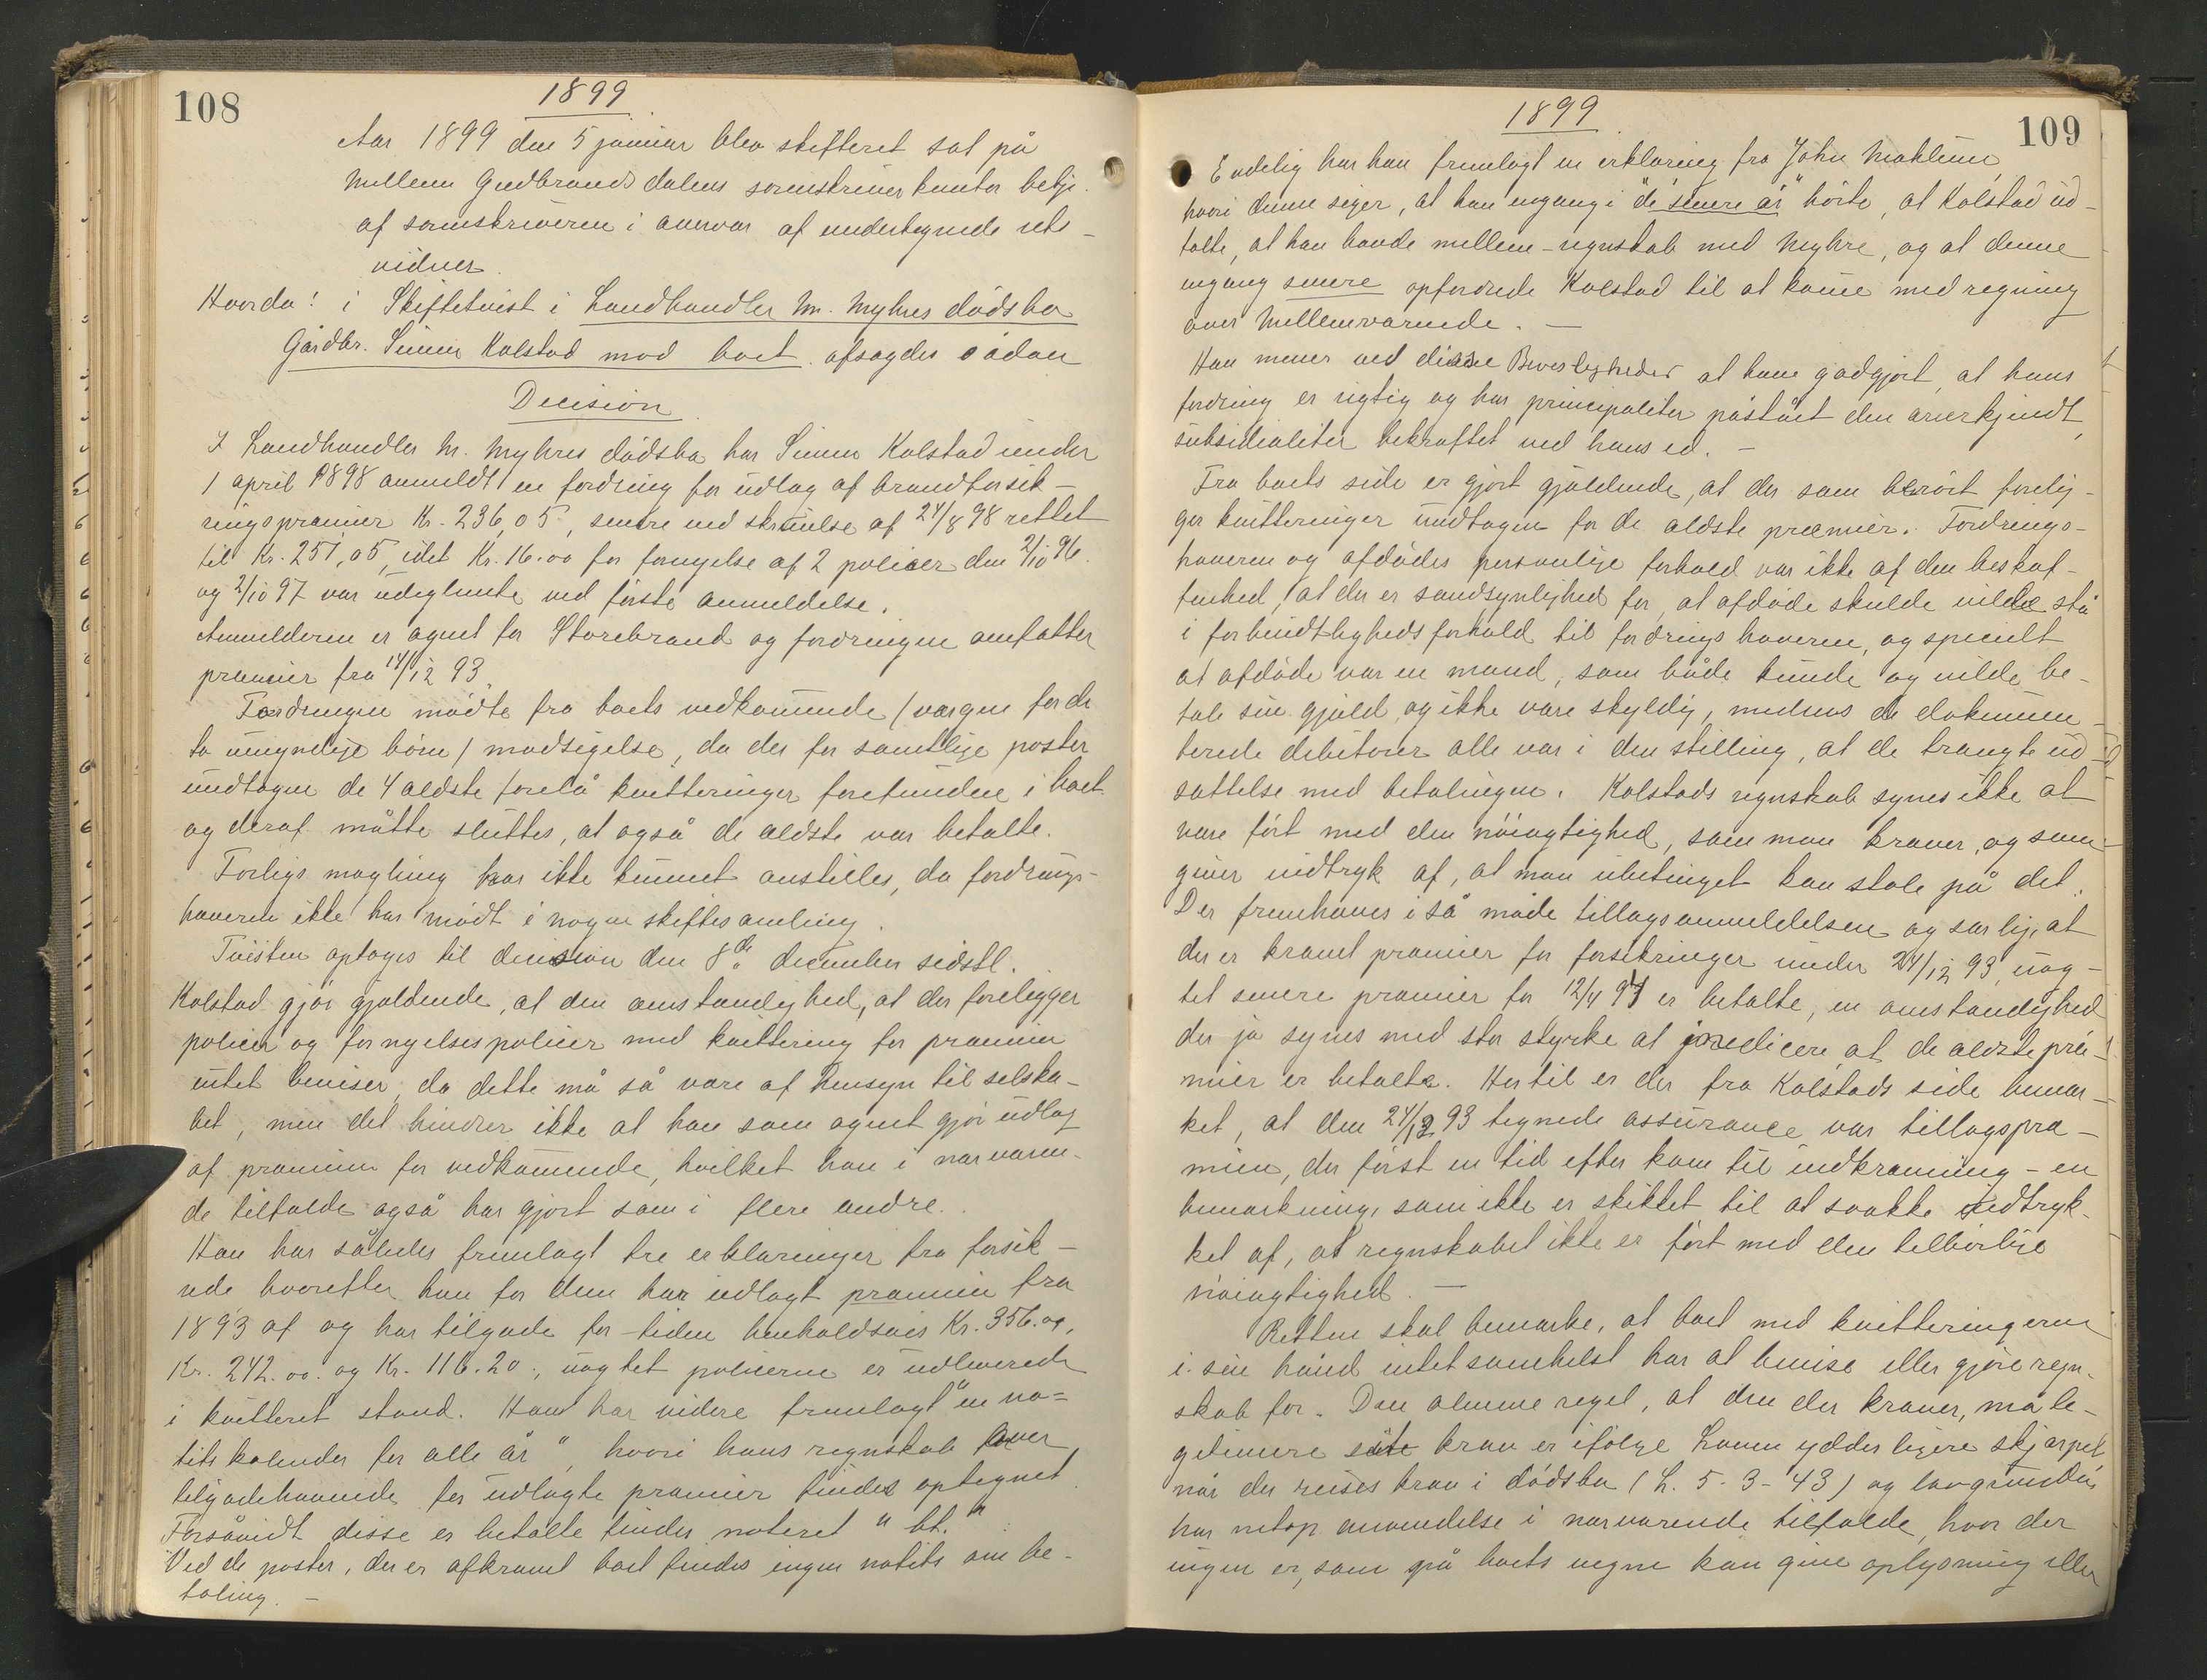 108
1899
Aar 1899 den 5 januar blev skifteret sat på
Mellem Gudbrandsdalens sorenskriverkontor betje.
af sorenskriveren i overvær af undertegnede rets-
vidner.
Hvorda: i Skiftetvist i Landhandler M. Myhres dødsbo
Gårdbr. Simen Kolstad mod boet afsagdes sådan
Decision
I Landhandler M. Myhres dødsbo har Simen Kolstad under
1 april 1898 anmeldt en fordring for udlæg af brandforsik-
ringspræmier Kr. 236,05, senere ved skrivelse af 24/8 98 rettet
til Kr. 251,05, idet Kr. 16.00 for fornyelse af 2 policer den 2/10 96
og 2/10 97 var udeglemte ved første anmeldelse.
Anmelderen er agent for Storebrand og fordringen omfatter
præmier fra 14/12 93.
Fordringen mødte fra boets vedkommende (værgen for de
to umyndige børn) modsigelse, da der for samtlige poster
undtagen de 4 ældste forelå kvitteringer forefundne i boet
og deraf måtte sluttes, at også de ældste var betalte.
Forligs mægling har ikke kunnet anstilles, da fordrings-
haveren ikke har mødt i nogen skiftesamling.
Tvisten optoges til decision den 8de december sidstl.
Kolstad gjør gjældende, at den omstændighed, at der foreligger
policer og fornyelsespolicer med kvittering for præmien
intet beviser, da dette må så være af hensyn til selska-
bet, men det hindrer ikke at han som agent gjør udlæg
af præmien for vedkommende, hvilket han i nærværen-
de tilfælde også har gjort som i flere andre.
Han har således fremlagt tre erklæringer fra forsik-
rede hvorefter han for dem har udlagt præmien fra
1893 af og har tilgode for tiden henholdsvis Kr. 356.00,
Kr. 242.00. og Kr. 116.20., uagtet policerne er udleverede
i kvitteret stand. Han har videre fremlagt "en no=
tits kalender for alle år", hvori hans regnskab over
tilgodehavende for udlagte præmier findes optegnet.
Forsåvidt disse er betalte findes noteret "bt."
Ved de poster, der er afkrævet boet findes ingen notits om be-
taling. -
109
1899
Endelig har han fremlagt en erklæring fra John Mæhlum,
hvori denne siger, at han engang i "de senere år" hørte, at Kolstad ud-
talte, at han havde mellem-regnskab med Myhre, og at denne
engang senere opfordrede Kolstad til at komme med regning
over Mellemværende. -
Han mener ved disse Bevisligheder at have godgjort, at hans
fordring er rigtig og har principaliter påstået den anerkjendt,
subsidialiter bekræftet ved hans ed. -
Fra boets side er gjort gjældende, at der som berørt forelig-
ger kvitteringer undtagen for de ældste præmier. Fordrings-
haveren og afdødes personlige forhold var ikke af den beskaf-
fenhed, at der er sandsynlighed for, at afdøde skulde vilde stå
i forbindtligheds forhold til fordrings haveren, og specielt
at afdøde var en mand, som både kunde og vilde be-
tale sin gjæld og ikke være skyldig, medens de dokumen-
terede debitorer alle var i den stilling, at de trængte ud-
sættelse med betalingen. Kolstads regnskab synes ikke at
være ført med den nøiagtighed, som man kræver, og som
giver indtryk af, at man ubetinget kan stole på det.
Der fremhæves i så måde tillægsanmeldelsen og særlig, at
der er krævet præmier for forsikringer under 24/12 93, uag-
tet senere præmier for 12/4 94 er betalte, en omstændighed
der jo synes med stor styrke at indicere at de ældste præ-
mier er betalte. Hertil er der fra Kolstads side bemær-
ket, at den 24/12 93 tegnede assurance var tillægspræ-
mien, der først en tid efter kom til indkrævning - en
bemærkning, som ikke er skikket til at svække indtryk-
ket af, at regnskabet ikke er ført med den tilbørlige
nøiagtighed. -
Retten skal bemærke, at boet med kvitteringerne
i sin hånd intetsomhelst har at bevise eller gjøre regn-
skab for. Den almene regel, at den der kræver, må le-
gitimere sit krav er ifølge Loven yderligere skjærpet
når der reises krav i dødsbo (L. 5-3-43) og lovgrunden
har netop anvendelse i nærværende tilfælde, hvor der
ingen er, som på boets vegne kan give oplysning eller